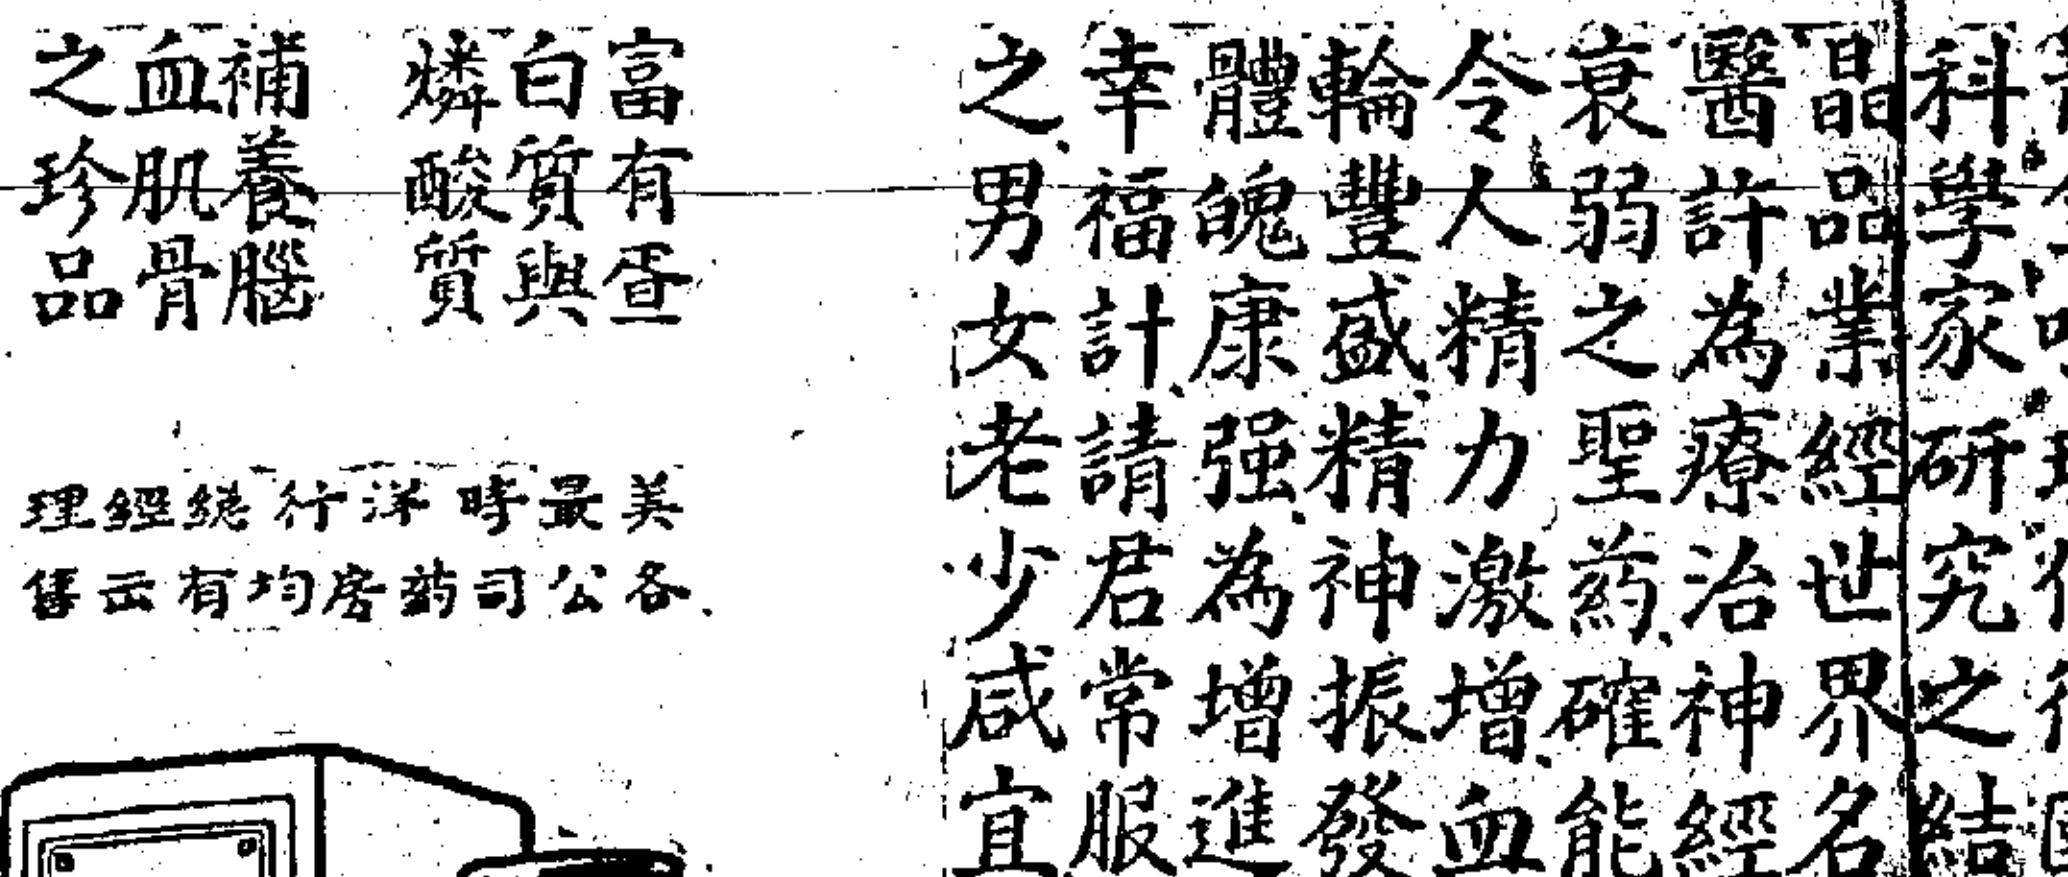 科學家研究之結
晶品業經世界名
醫許為療治神經
衰弱之聖药、確能
令人精力激增、血
輪豐盛、精神振發
體魄康强、為增進
幸福計、請君常服
之、男女老少咸宜
富有蛋
白質與
燐酸質
補養腦
血肌骨
之珍品
美最時洋行總經理
各公司药房均有出售